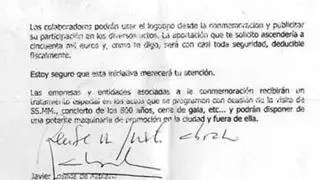 Los colaboradores podrán usar el logotipo desde la conmemoración y publicitar
su participación en los diversos actos. La aportación que te solicito ascendería a
cincuenta mil euros y, como te digo, será con casi toda seguridad, deducible
fiscalmente.
Estoy seguro que esta iniciativa merecerá tu atención.
Las empresas y entidades asociadas a la conmemoración recibirán un
tratamiento especial en los actos que se programen con ocasión de la visita de
SS.MM., concierto de los 800 años, cena de gala, etc... y podrán disponer de
una potente maquinaria de promoción en la ciudad y fuera de ella.
Javier